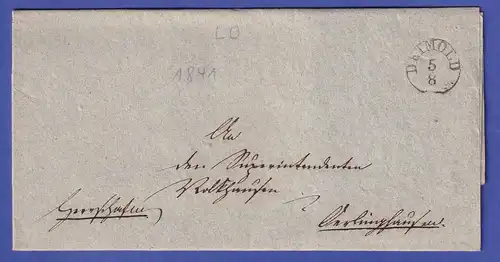 LD
1841
DETMOLD
5
8
An
den Superintendenten
Volkhausen
Herrschaftl.
Oerlinghausen.